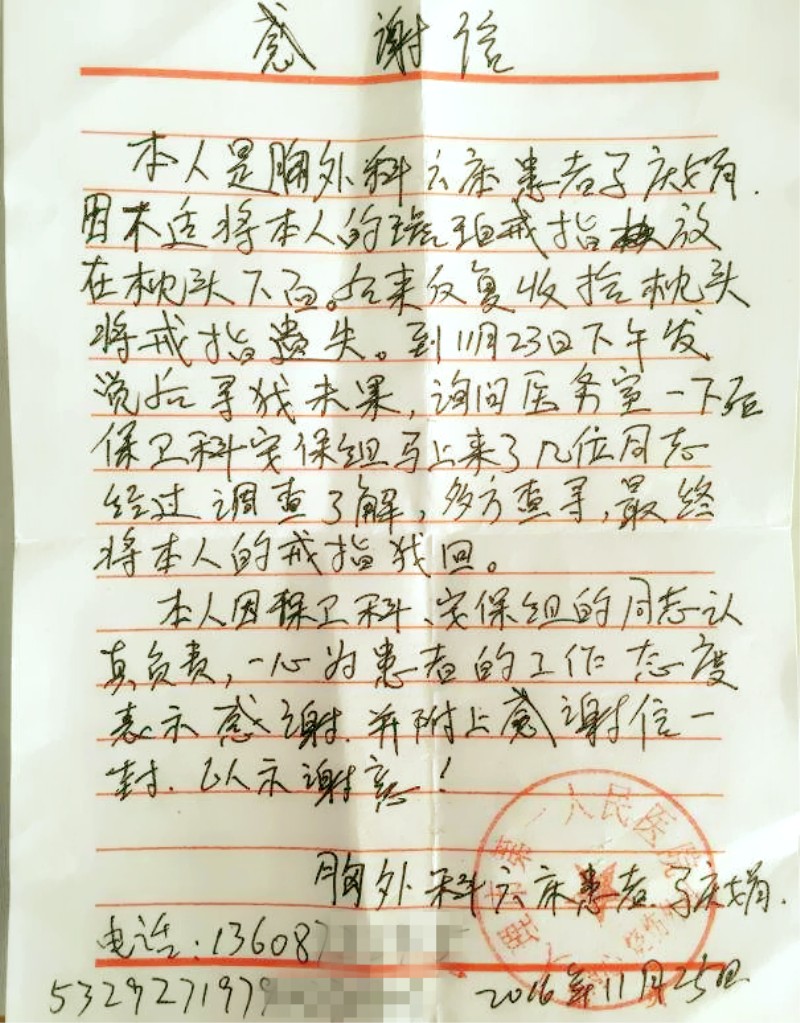 感谢信
本人是胸外科六床患者子庆娟.
因不适将本人的琥珀戒指放
在枕头下面。后来反复收拾枕头
将戒指遗失。到11月23日下午发
觉后寻找未果，询问医务室一下班
保卫科安保组马上来了几位同志
经过调查了解，多方查寻，最终
将本人的戒指找回。
本人因保卫科、安保组的同志认
真负责，一心为患者的工作态度
表示感谢.并附上感谢信一
封.以示谢意！
一人民医院
胸外科六床患者.子庆娟.
电话：136087
5329271979
2016年11月25日